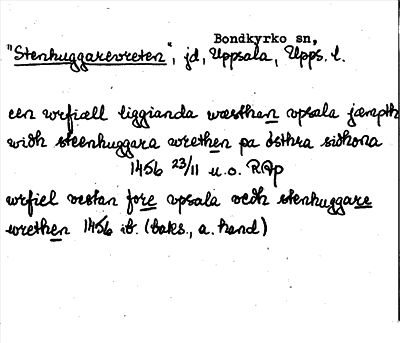 Bondkyrko sn,
"Stenhuggarevreten", jd, Uppsala, Upps. l.
een wrfiæll liggianda wæsthen vpsala jæmpth
widh steenhuggara wrethen pa østhra sidhona
1456 23/11 u.o. RAp
wrfiel vestan fore vpsala vedh stenhuggare
wrethen 1456 ib. (baks., a. hand)